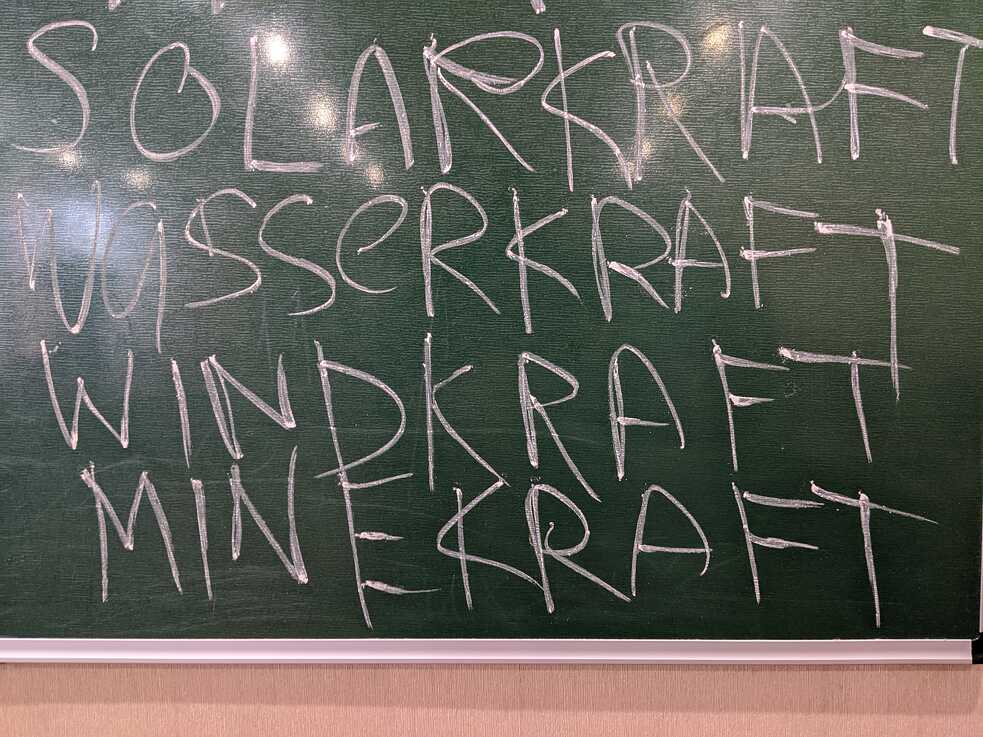 SOLARKRAFT
WasserKRAFT
WINDKRAFT
MINEKRAFT